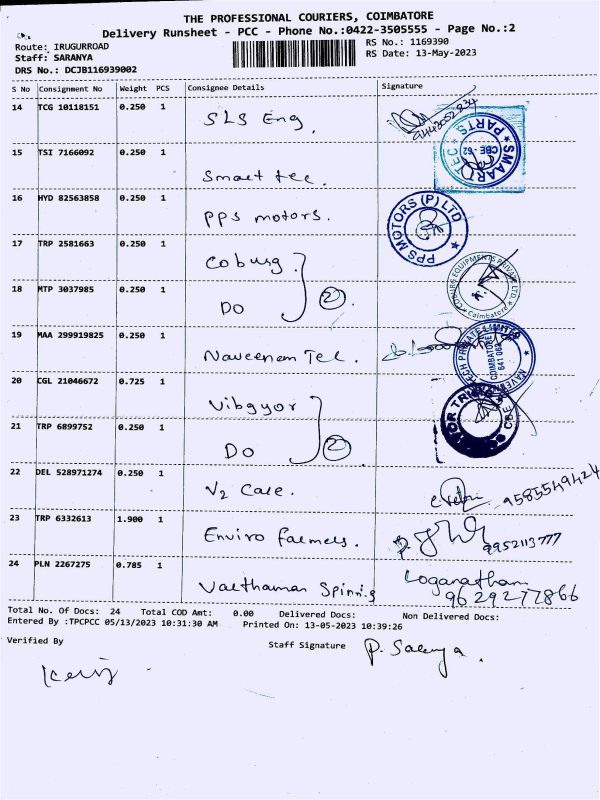 THE PROFESSIONAL COURIERS, COIMBATORE
Delivery Runsheet - PCC - Phone No.:0422-3505555 - Page No.:2
Route: IRUGURROAD RS No.: 1169390
Staff: SARANYA RS Date: 13-May-2023
DRS No.: DCJB116939002
S No Consignment No Weight PCS Consignee Details Signature
14 TCG 10118151 0.250 1 SLS Eng.
SMAART TEC PARTS CBE - 62
15 TSI 7166092 0.250 1 Smart tec.
16 HYD 82563858 0.250 1 PPS motors. PPS MOTORS (P) LTD
17 TRP 2581663 0.250 1 Coburg
18 MTP 3037985 0.250 1 DO 2. COBURG EQUIPMENTS PRIVATE LTD. Coimbatore
19 MAA 299919825 0.250 1 Naveenam Tec.
TECH PRIVATE LIMITED COIMBATORE
20 CGL 21046672 0.725 1 Vibgyor
21 TRP 6899752 0.250 1 DO 2 CBE
22 DEL 528971274 0.250 1 V2 Care. 9585549424
23 TRP 6332613 1.900 1 Enviro farmers. 9952113777
24 PLN 2267275 0.785 1 Varthaman Spinnig Loganatham
9629277866
Total No. Of Docs: 24 Total COD Amt: 0.00 Delivered Docs: Non Delivered Docs:
Entered By :TPCPCC 05/13/2023 10:31:30 AM Printed On: 13-05-2023 10:39:26
Verified By Staff Signature P. Saranya.